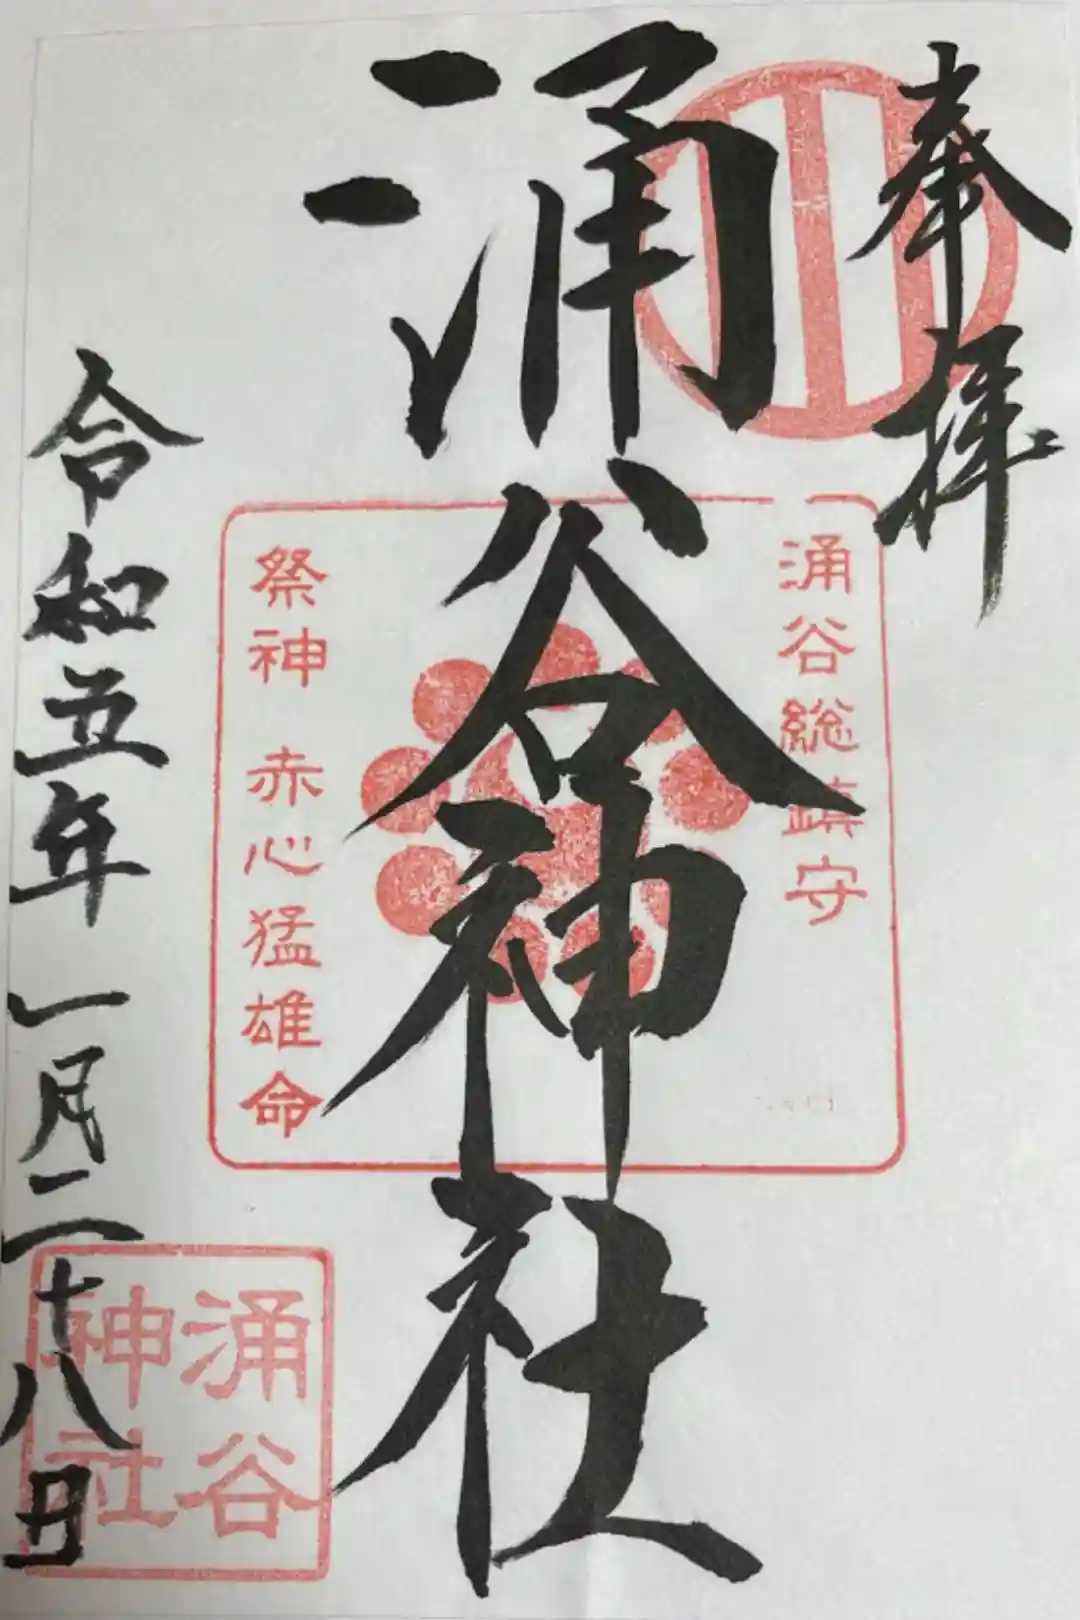 奉拝
涌谷総鎮守
涌谷神社
祭神 赤心猛雄命
令和五年一月二十八日
涌谷
神社